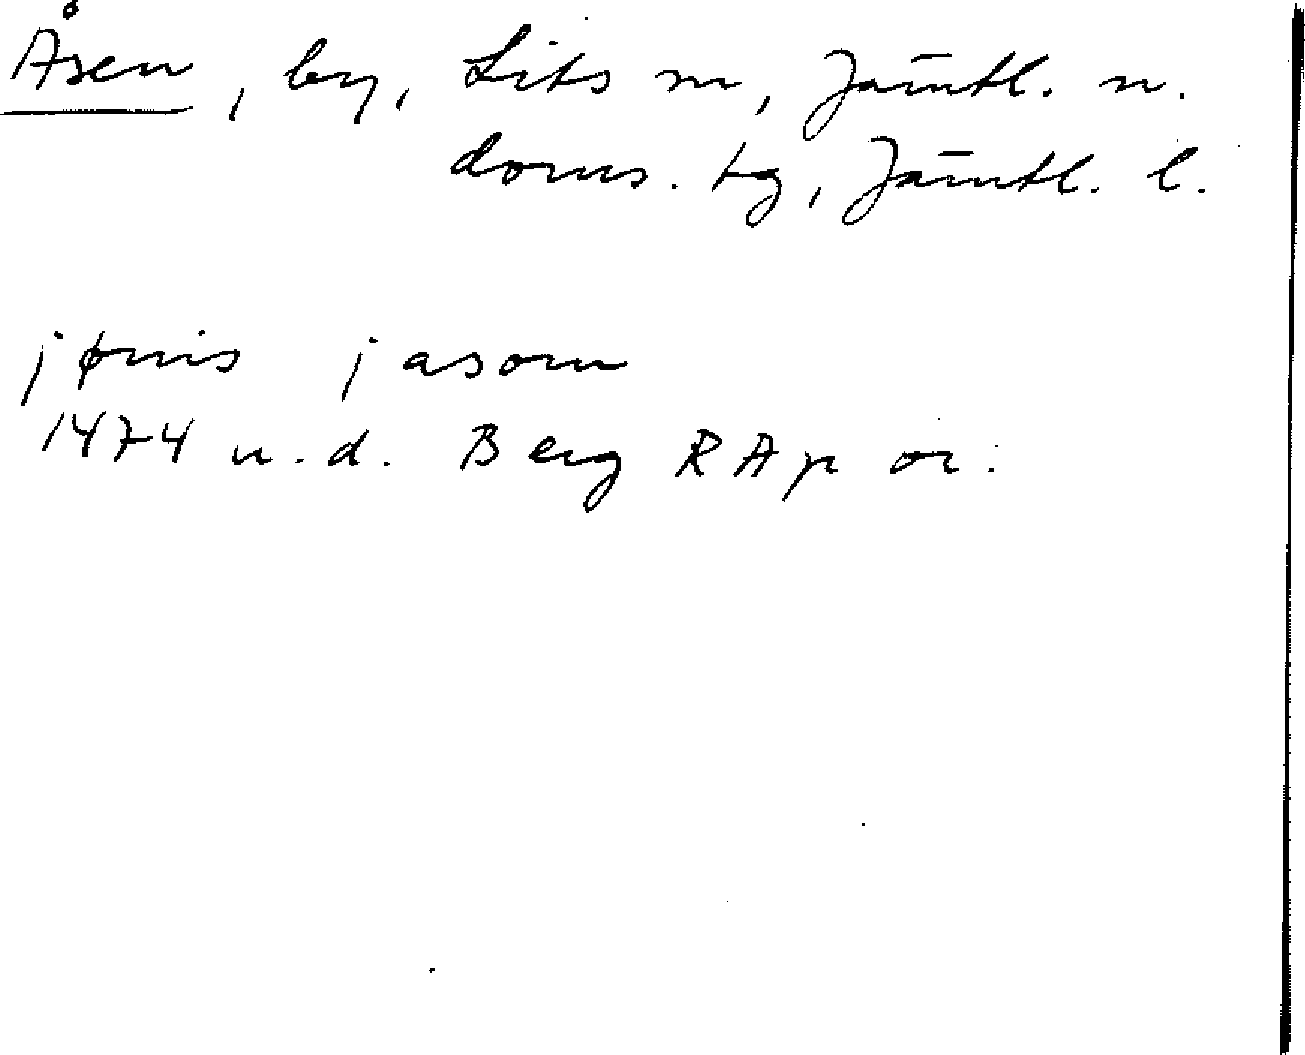 Åsen, by, Lits sn, Jämtl. n.
doms. tg, Jämtl. l.
jønis j asom
1474 u.d. Berg RAp or.